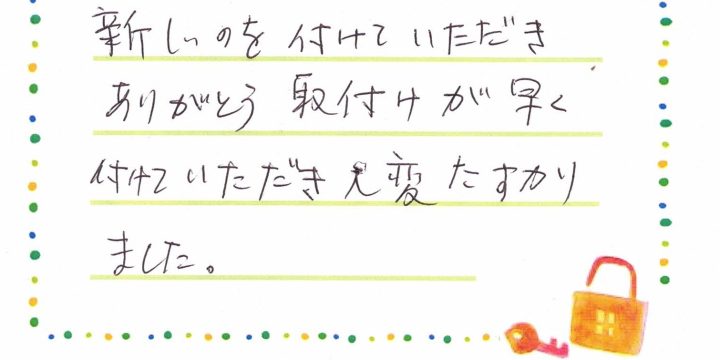 新しいのを付けていただき
ありがとう 取付けが早く
付けていただき大変たすかり
ました。